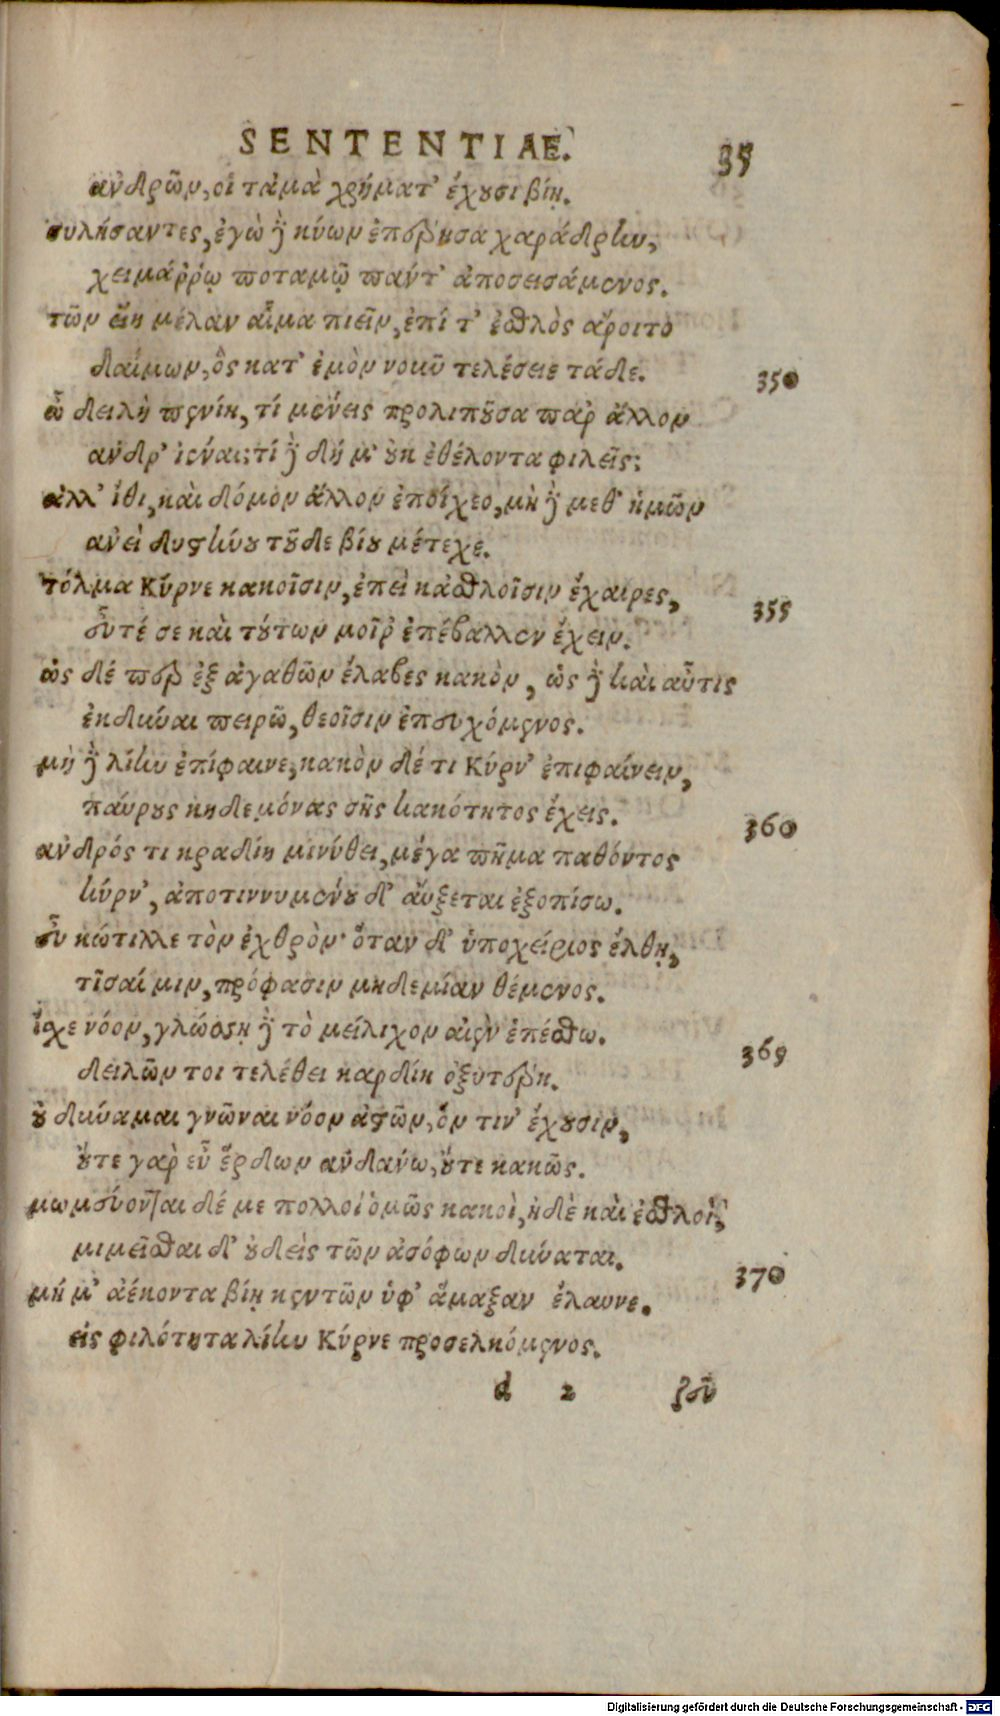 SENTENTIAE. 35
ἀνδρῶν, οἳ τἀμὰ χρήματ᾽ ἔχουσι βίῃ.
συλήσαντες, ἐγὼ δὲ κύων ἐπέρησα χαράδρην,
χειμάῤῥῳ ποταμῷ πάντ᾽ ἀποσεισάμενος.
τῶν εἴη μέλαν αἷμα πιεῖν, ἐπί τ᾽ ἐσθλὸς ἄροιτο
δαίμων, ὃς κατ᾽ ἐμὸν νοῦν τελέσειε τάδε. 350
ὦ δειλὴ πενίη, τί μένεις προλιποῦσα παρ ἄλλον
ἀνδρ᾽ ἰέναι; τί δὲ δή μ᾽ οὐκ ἐθέλοντα φιλεῖς;
ἀλλ᾽ ἴθι, καὶ δόμον ἄλλον ἐποίχεο, μὴ δὲ μεθ᾽ ἡμῶν
αἰεὶ δυστήνου τοῦδε βίου μέτεχε.
τόλμα Κύρνε κακοῖσιν, ἐπεὶ κἀσθλοῖσιν ἔχαιρες, 355
εὖτέ σε καὶ τούτων μοῖρ ἐπέβαλλεν ἔχειν.
ὡς δέ περ ἐξ ἀγαθῶν ἔλαβες κακὸν, ὡς δὲ καὶ αὖτις
ἐκδῦναι πειρῶ, θεοῖσιν ἐπευχόμενος.
μὴ δὲ λίην ἐπίφαινε, κακὸν δέ τι Κύρν᾽ ἐπιφαίνειν,
παύρους κηδεμόνας σῆς κακότητος ἔχεις. 360
ἀνδρός τι κραδίη μινύθει, μέγα πῆμα παθόντος
κύρν᾽, ἀποτιννυμένου δ᾽ αὔξεται ἐξοπίσω.
εὖ κώτιλλε τὸν ἐχθρὸν· ὅταν δ᾽ ὑποχείριος ἔλθῃ,
τῖσαί μιν, πρόφασιν μηδεμίαν θέμενος.
ἴσχε νόον, γλώσσῃ δὲ τὸ μείλιχον αἰὲν ἐπέσθω. 365
δειλῶν τοι τελέθει καρδίη ὀξυτέρη.
οὐ δύναμαι γνῶναι νόον ἀστῶν, ὅν τιν᾽ ἔχουσιν,
οὔτε γὰρ εὖ ἔρδων ἁνδάνω, οὔτε κακῶς.
μωμεύονται δέ με πολλοὶ ὁμῶς κακοὶ, ἠδὲ καὶ ἐσθλοὶ,
μιμεῖσθαι δ᾽ οὐδεὶς τῶν ἀσόφων δύναται. 370
μή μ᾽ ἀέκοντα βίῃ κεντῶν ὑφ᾽ ἅμαξαν ἔλαυνε.
εἰς φιλότητα λίην Κύρνε προσελκόμενος.
d 2 ζεῦ
Digitalisierung gefördert durch die Deutsche Forschungsgemeinschaft - DFG